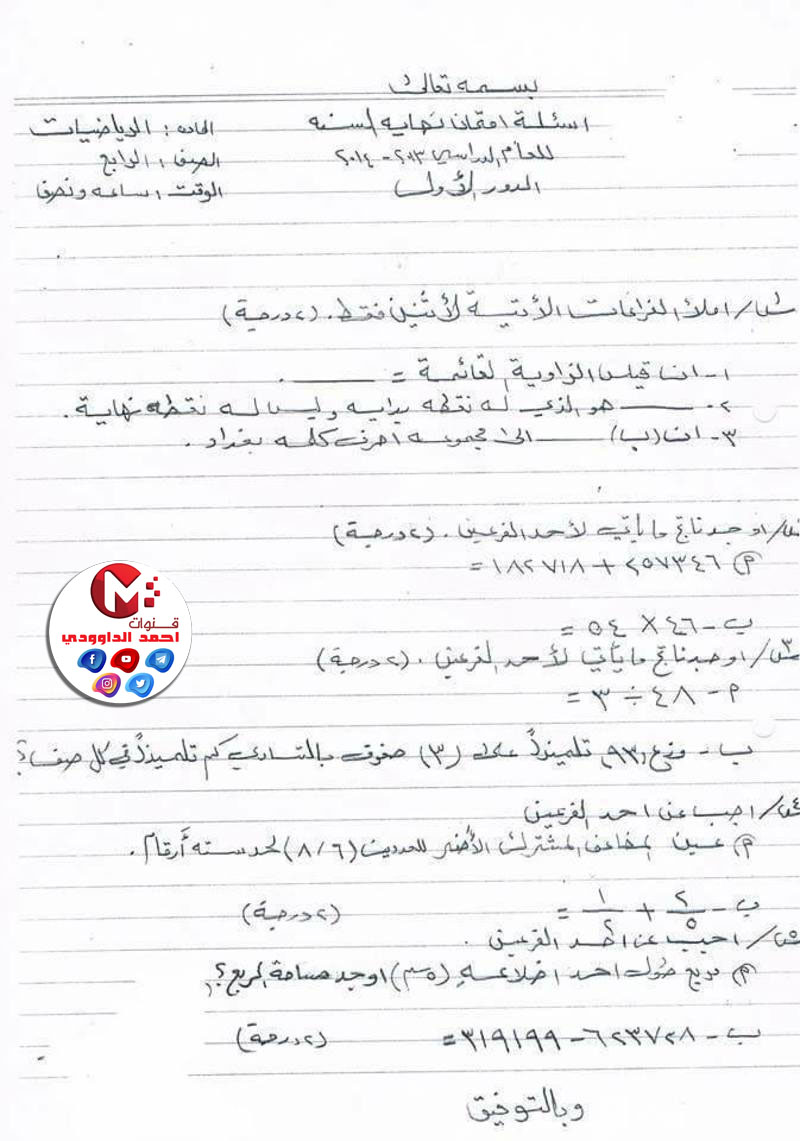 بسمه تعالى
اسئلة امتحان نهاية السنة
للعام الدراسي ٢٠١٣ - ٢٠١٤
الدور الأول
المادة : الرياضيات
الصف : الرابع
الوقت : ساعة ونصف
س١/ املأ الفراغات الأتية لأثنين فقط . (٢ درجة)
١- ان قياس الزاوية القائمة = ـــــــ .
٢- ـــــــ هو الذي له نقطه بدايه وليس له نقطه نهاية .
٣- ان (ب) ـــــــ الى مجموعه احرف كلمه بغداد .
س٢/ اوجد ناتج ما يأتي لأحد الفرعين . (٢ درجة)
م) ٢٥٧٣٤٦ + ١٨٢٧١٨ =
ب - ٤٦ × ٥٤ =
س٣/ اوجد ناتج ما يأتي لأحد الفرعين . (٢ درجة)
م - ٤٨ ÷ ٣ =
ب - وزع (٩٣) تلميذاً على (٣) صفوف بالتساوي كم تلميذاً في كل صف ؟
س٤/ اجب عن احد الفرعين
م) عين المضاعف المشترك الأصغر للعددين (٨/٦) لحد سته أرقام .
ب - ٢/٥ + ١/٢ = (٢ درجة)
س٥/ اجب عن أحد الفرعين .
م) مربع طول احد اضلاعه (٥سم) اوجد مساحة المربع ؟
ب - ٦٢٣٧٢٨ - ٣١٩١٩٩ = (٢ درجة)
وبالتوفيق
قنوات
احمد الداوودي